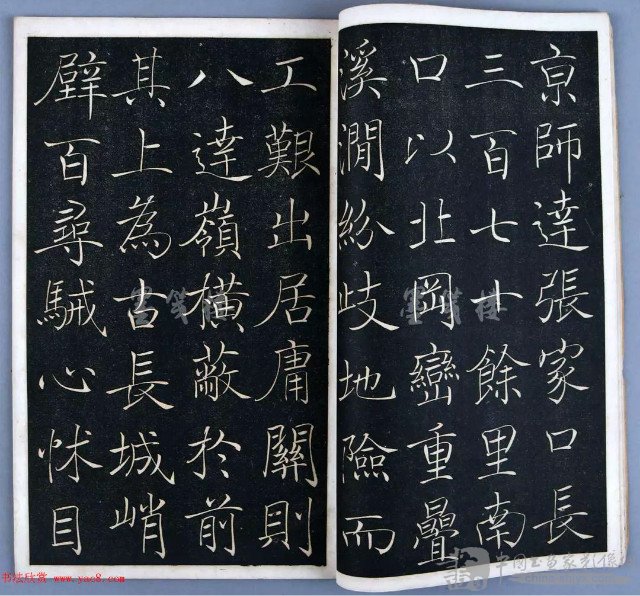 京師達張家口長
三百七十餘里南
口以北岡巒重疊
溪澗紛歧地險而
工艱出居庸關則
八達嶺橫蔽於前
其上為古長城峭
壁百尋駴心怵目
书法欣赏 www.yac8.com